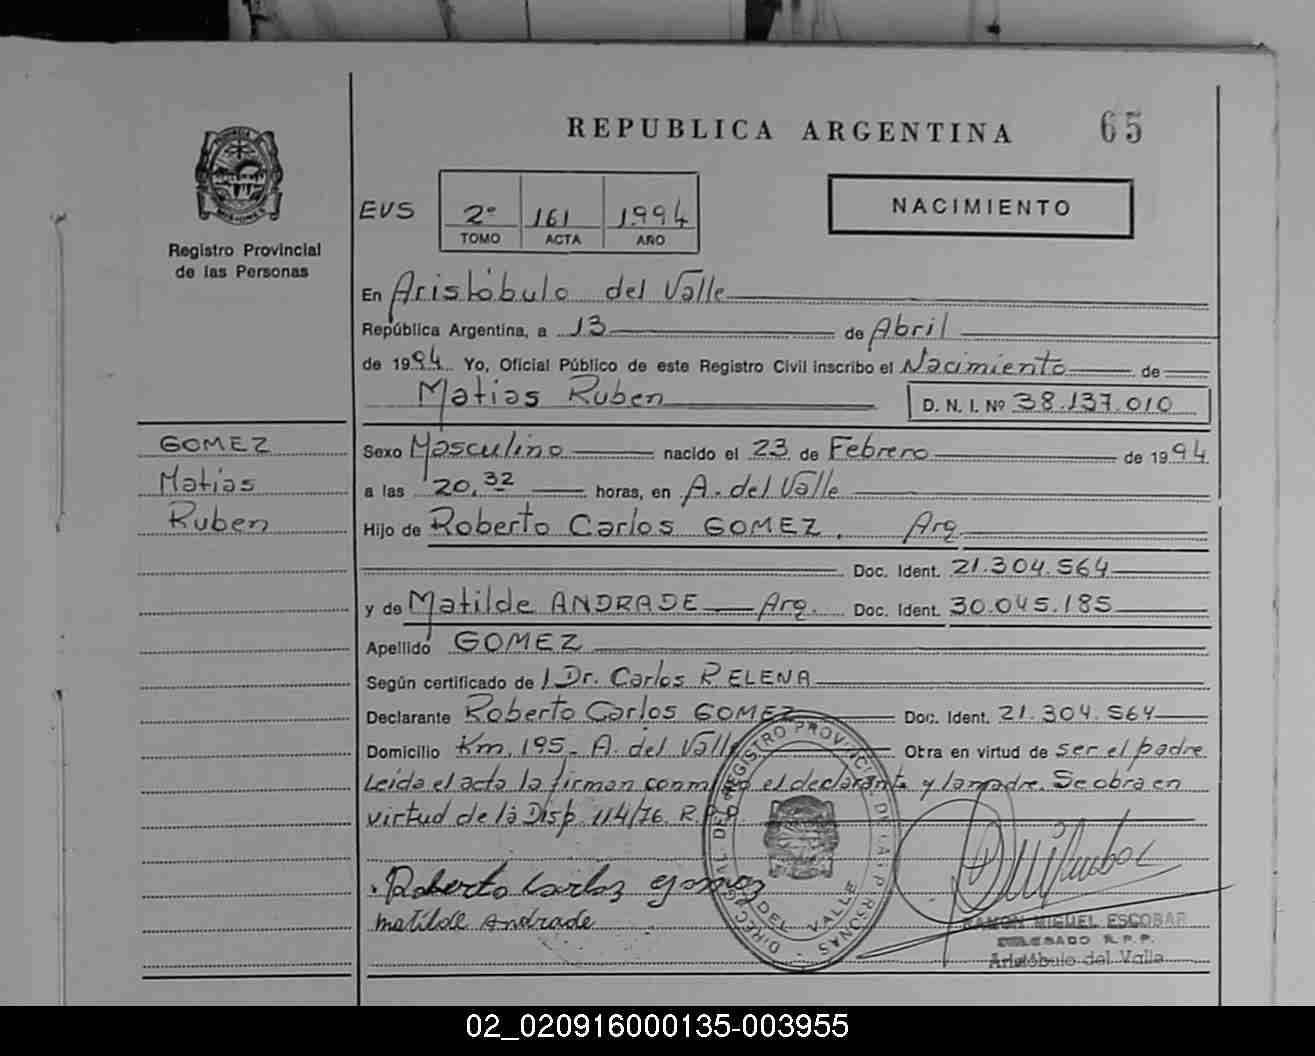 REPUBLICA ARGENTINA 65
PROVINCIA
MISIONES
Registro Provincial
de las Personas
EVS 2º 161 1994
TOMO ACTA AÑO
NACIMIENTO
En Aristóbulo del Valle
República Argentina, a 13 de Abril
de 1994 Yo, Oficial Público de este Registro Civil inscribo el Nacimiento de
Matias Ruben D. N. I. Nº 38.137.010
GOMEZ
Matias
Ruben
Sexo Masculino nacido el 23 de Febrero de 1994
a las 20,32 horas, en A. del Valle
Hijo de Roberto Carlos GOMEZ. Arg
Doc. Ident. 21.304.564
y de Matilde ANDRADE Arg. Doc. Ident. 30.045.185
Apellido GOMEZ
Según certificado de Dr. Carlos RELENA
Declarante Roberto Carlos GOMEZ Doc. Ident. 21.304.564
Domicilio Km. 195 - A. del Valle Otra en virtud de ser el padre
Leida el acta la firman conmigo el declarante y la madre. Se obra en
virtud de la Disp. 114/76. R.P.P.
Roberto Carlos gomez
matilde Andrade
DIRECC. GRAL. DEL REGISTRO PROVINCIAL DE LAS PERSONAS
DEL VALLE
RAMON MIGUEL ESCOBAR
DELEGADO R.P.P.
Aristóbulo del Valle
02_020916000135-003955